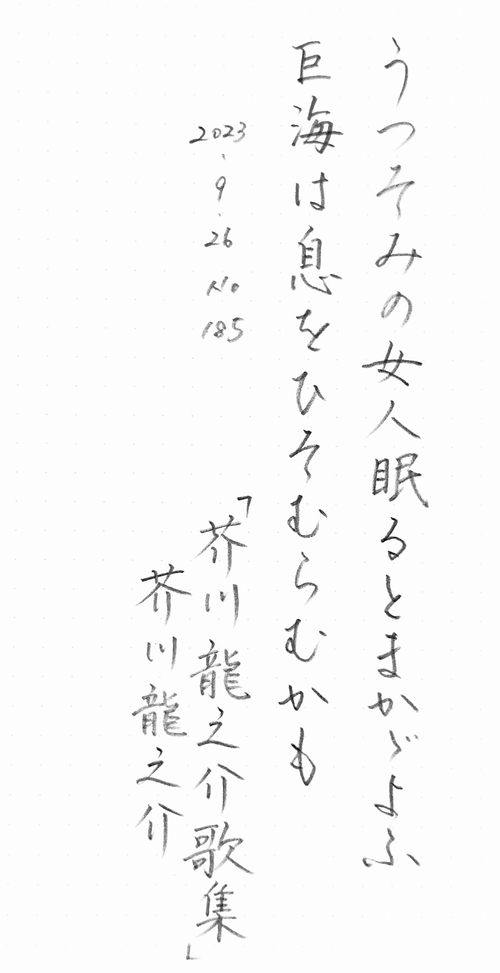 うつそみの女人眠るとまかゞよふ
巨海は息をひそむらむかも
2023.9.26 No 185
「芥川龍之介歌集」
芥川龍之介